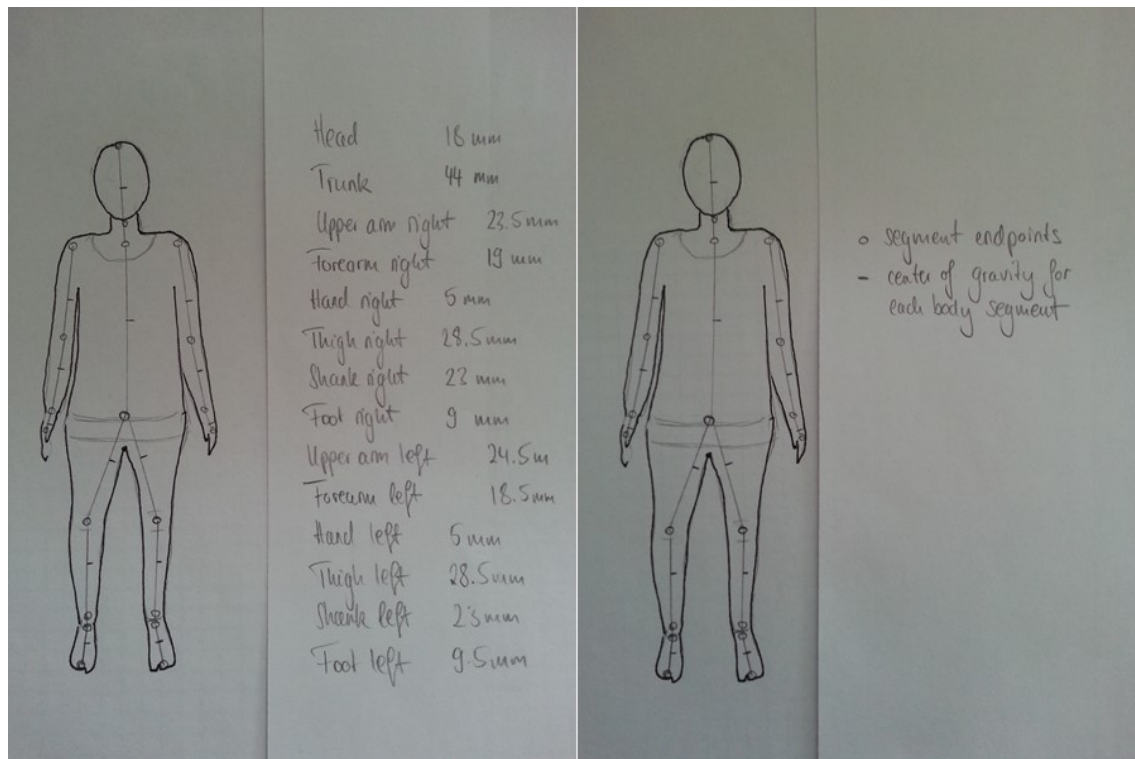 Head 18 mm
Trunk 44 mm
Upper arm right 23.5mm
Forearm right 19 mm
Hand right 5 mm
Thigh right 28.5mm
Shank right 23 mm
Foot right 9 mm
Upper arm left 24.5m
Forearm left 18.5mm
Hand left 5mm
Thigh left 28.5mm
Shank left 23mm
Foot left 9.5mm
o segment endpoints
- center of gravity for
each body segment